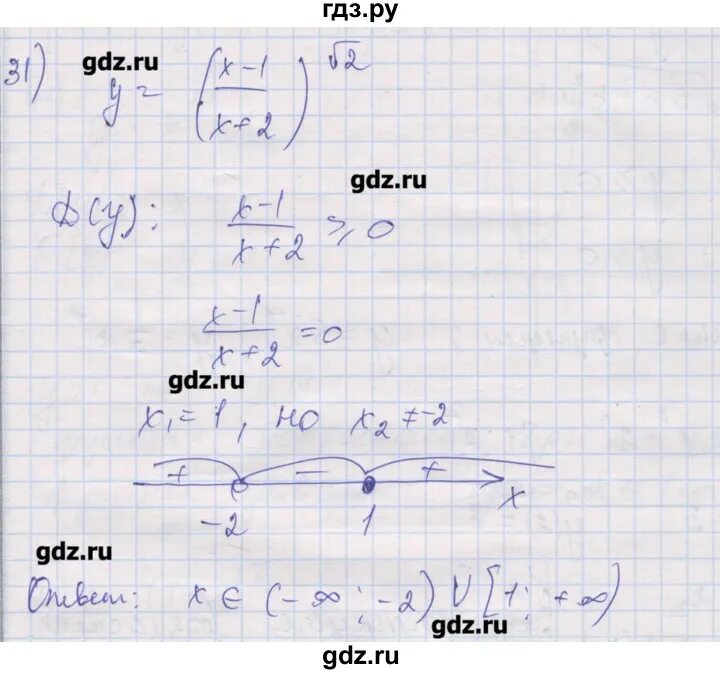 гдз.ру
31) y = ((x-1)/(x+2))^√2
gdz.ru
gdz.ru
D(y): (x-1)/(x+2) ⩾ 0
(x-1)/(x+2) = 0
gdz.ru
x₁ = 1, но x₂ ≠ -2
+ − +
x
-2 1
gdz.ru
Ответ: x ∈ (-∞; -2) ∪ [1; +∞)
gdz.ru
gdz.ru